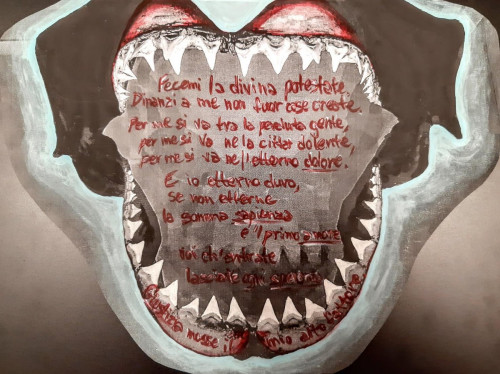 Fecemi la divina potestate
Dinanzi a me non fuor cose create
Per me si va tra la perduta gente,
per me si va ne la città dolente,
per me si va nell'etterno dolore.
E io etterno duro,
se non etterne
la somma sapienza
e 'l primo amore
voi ch'entrate
lasciate ogni speranza
Giustizia mosse il mio alto fattore